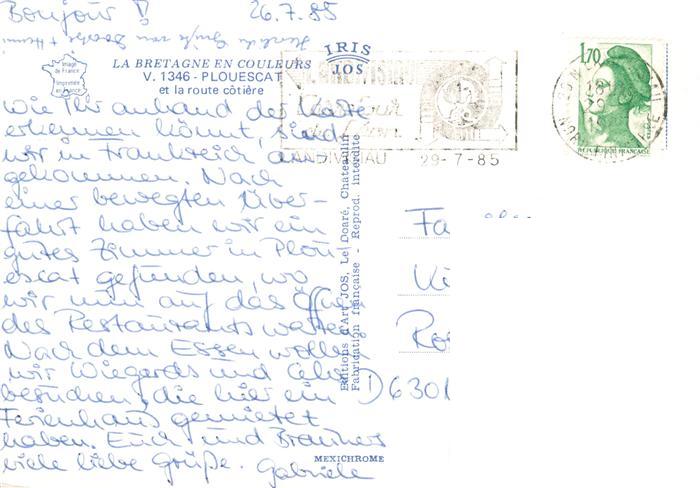 Bonjour !
26.7.85
IRIS
JOS
Image de France
Imprimée en France
LA BRETAGNE EN COULEURS
V. 1346 - PLOUESCAT
et la route côtière
wie Ihr anhand der Karte
erkennen könnt, sind
wir in Frankreich an-
gekommen. Nach
einer bewegten Über-
fahrt haben wir ein
gutes Zimmer in Plou-
escat gefunden, wo
wir nun auf das Öffnen
des Restaurants warten.
Nach dem Essen wollen
wir Wiegards und
besuchen, die hier ein
Ferienhaus gemietet
haben. Euch und
viele liebe Grüße. Gabriele
29-7-85
1,70
REPUBLIQUE FRANÇAISE
Editions d'Art JOS, Le Doaré, Chateaulin
Fabrication française - Reprod. interdite
MEXICHROME
Fa
D 6301